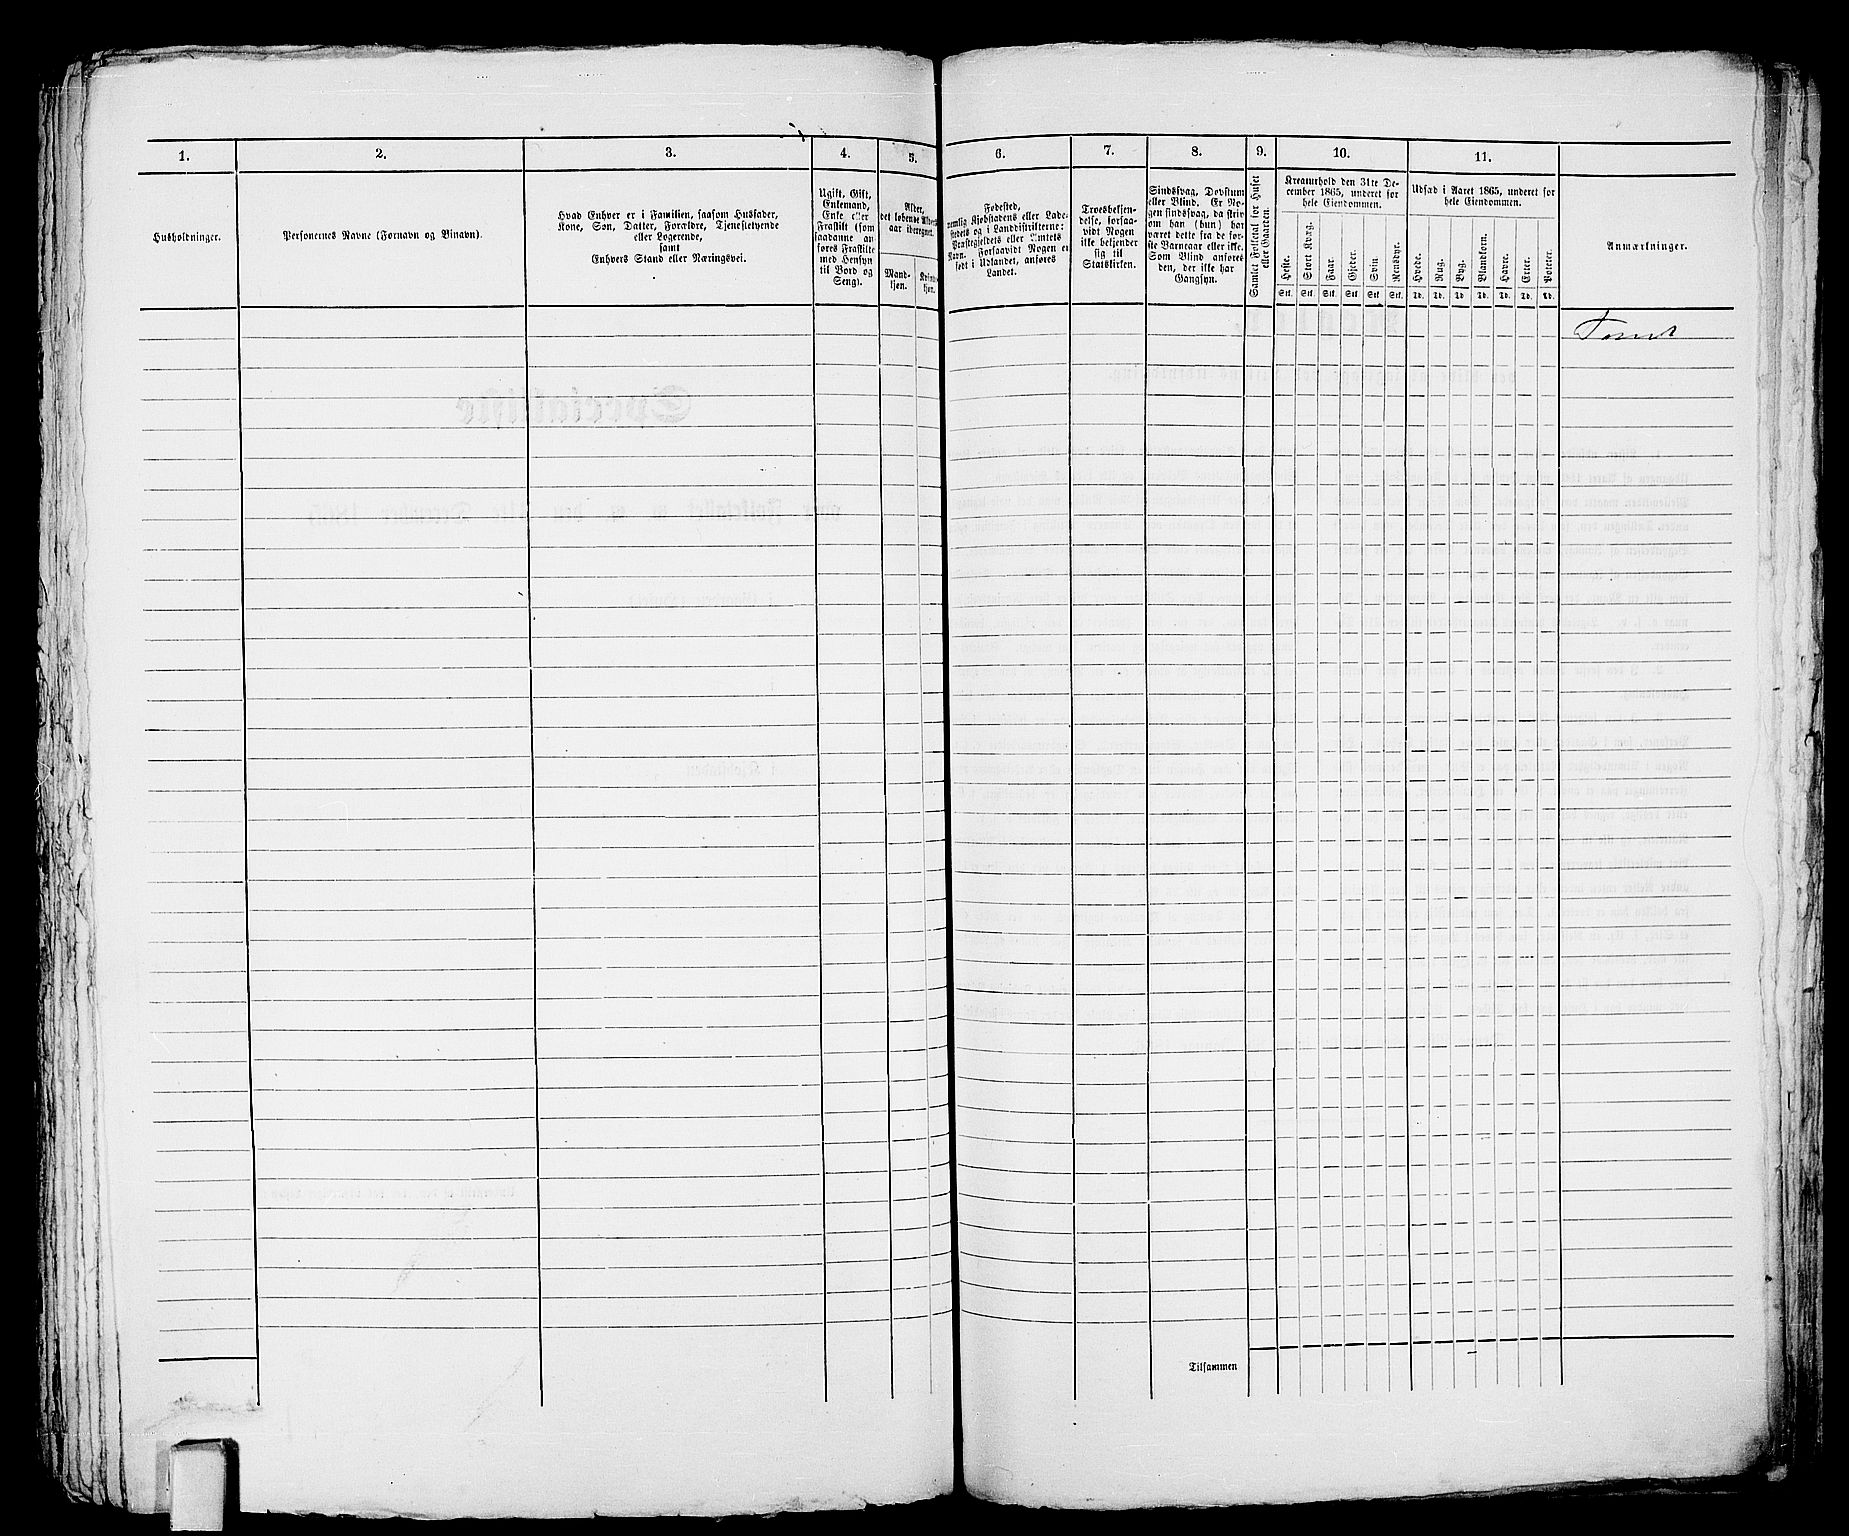 1.
2.
3.
4.
5.
6.
7.
8.
9.
10.
11.
Husholdninger.
Personernes Navne (Fornavn og Binavn).
Hvad Enhver er i Familien, saasom Husfader,
Kone, Søn, Datter, Forældre, Tjenestetyende
eller Logerende,
samt
Enhvers Stand eller Næringsvei.
Ugift, Gift,
Enkemand,
Enke eller
Fraskilt (som
saadanne an-
føres Fraskilte
med Hensyn
til Bord og
Seng).
Alder,
det løbende Alders-
aar iberegnet.
Mand-
kjøn.
Kvinde-
kjøn.
Fødested,
nemlig Kjøbstadens eller Lade-
stedets og i Landdistrikterne:
Præstegjeldets eller Amtets
Navn. Forsaavidt Nogen er
født i Udlandet, anføres
Landet.
Troesbekjen-
delse, forsaa-
vidt Nogen
ikke bekjender
sig til
Statskirken.
Sindssvag, Døvstum
eller Blind. Er No-
gen sindssvag, da skriv
om han (hun) har
været dette fra de før-
ste Barneaar eller ikke.
Som Blind anføres
den, der ikke har
Gangsyn.
Samlet Folketal for Huset
eller Gaarden.
Kreaturhold den 31te De-
cember 1865, underet for
hele Eiendommen.
Heste.
Stort Kvæg.
Faar.
Gjeder.
Svin.
Rensdyr.
Stk. Stk. Stk. Stk. Stk. Stk.
Udsæd i Aaret 1865, underet for
hele Eiendommen.
Hvede.
Rug.
Byg.
Blandkorn.
Havre.
Erter.
Poteter.
Td. Td. Td. Td. Td. Td. Td.
Anmærkninger.
Tomt
Tilsammen